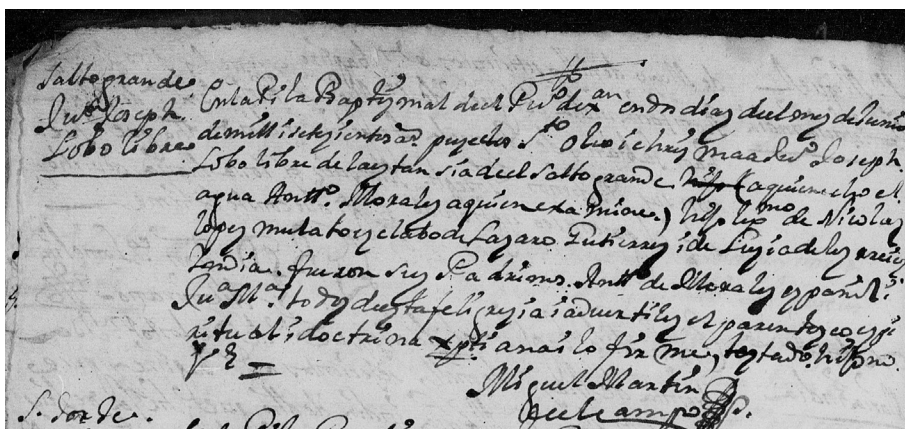 Saltogrande
Juº Joseph
Lobo libre
En la Pila Baptysmal de el Puº de xan en dos dias del mes de Junio
de mill i setesientos aº. puse los Stos olios i chrisma a Juº Joseph
Lobo libre de la estansia de el Salto grande hijo a quien echo el
agua Anttº. Morales a quien examine, hijo lexmo de Nicolas
lopes mulato esclabo de Lazaro Gutierres i de Lusia de los rreies
Yndia. fueron sus Padrinos. Anttº de Morales español i
Juª Mª todos de esta feligresia i aduertiles el parentesco espi
ritual i doctrina xptiana i lo firme, testado. hijo. no.
Vª
Miguel Martin
del campo
S. Jorde.